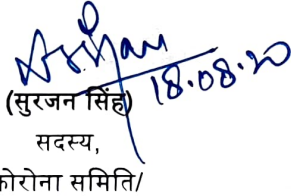 18.08.20
(सुरजन सिंह)
सदस्य,
कोरोना समिति/